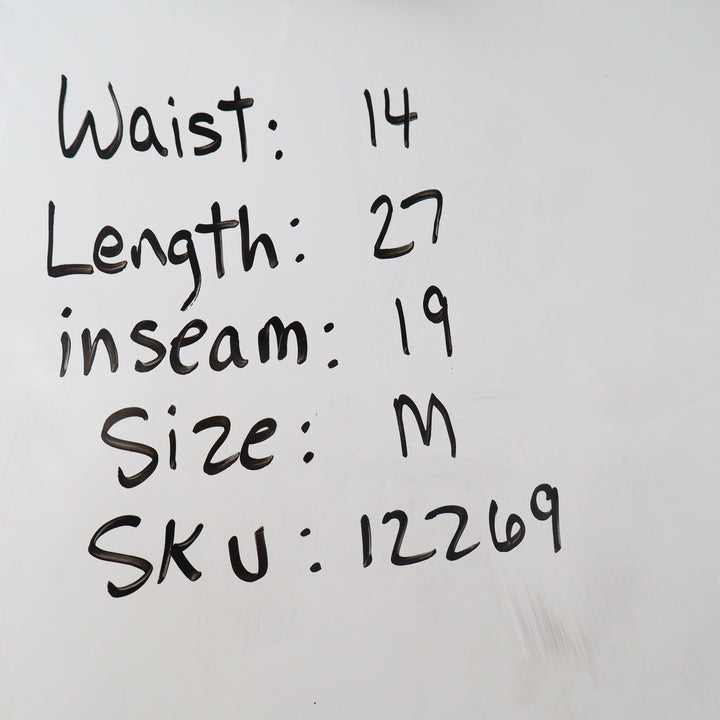 Waist: 14
Length: 27
inseam: 19
Size: M
SKU: 12269